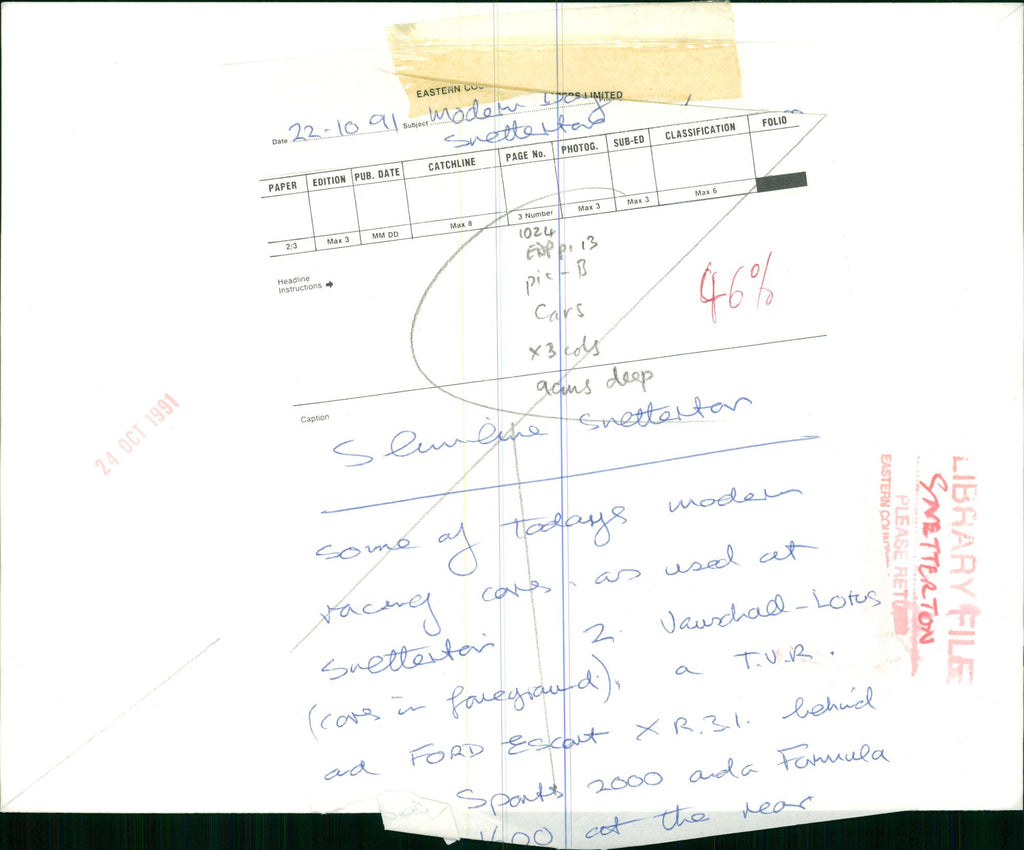 EASTERN COU
PERS LIMITED
Date 22-10-91 Subject Modern Day
Snetterton
PAPER EDITION PUB. DATE CATCHLINE PAGE No. PHOTOG. SUB-ED CLASSIFICATION FOLIO
2/3 Max 3 MM DD Max 8 3 Number Max 3 Max 3 Max 6
1024
EDP p. 13
pic - B
Headline
Instructions →
Cars
46%
x3 cols
9cms deep
Caption
Slimline Snetterton
24 OCT 1991
some of todays modern
racing cars, as used at
Snetterton 2 Vauxhall-Lotus
(cars in foreground), a T.V.R.
ad FORD Escort X R.3.I. behind
Sports 2000 and a Formula
1600 at the rear
LIBRARY FILE
SNETTERTON
PLEASE RETURN
EASTERN COUN